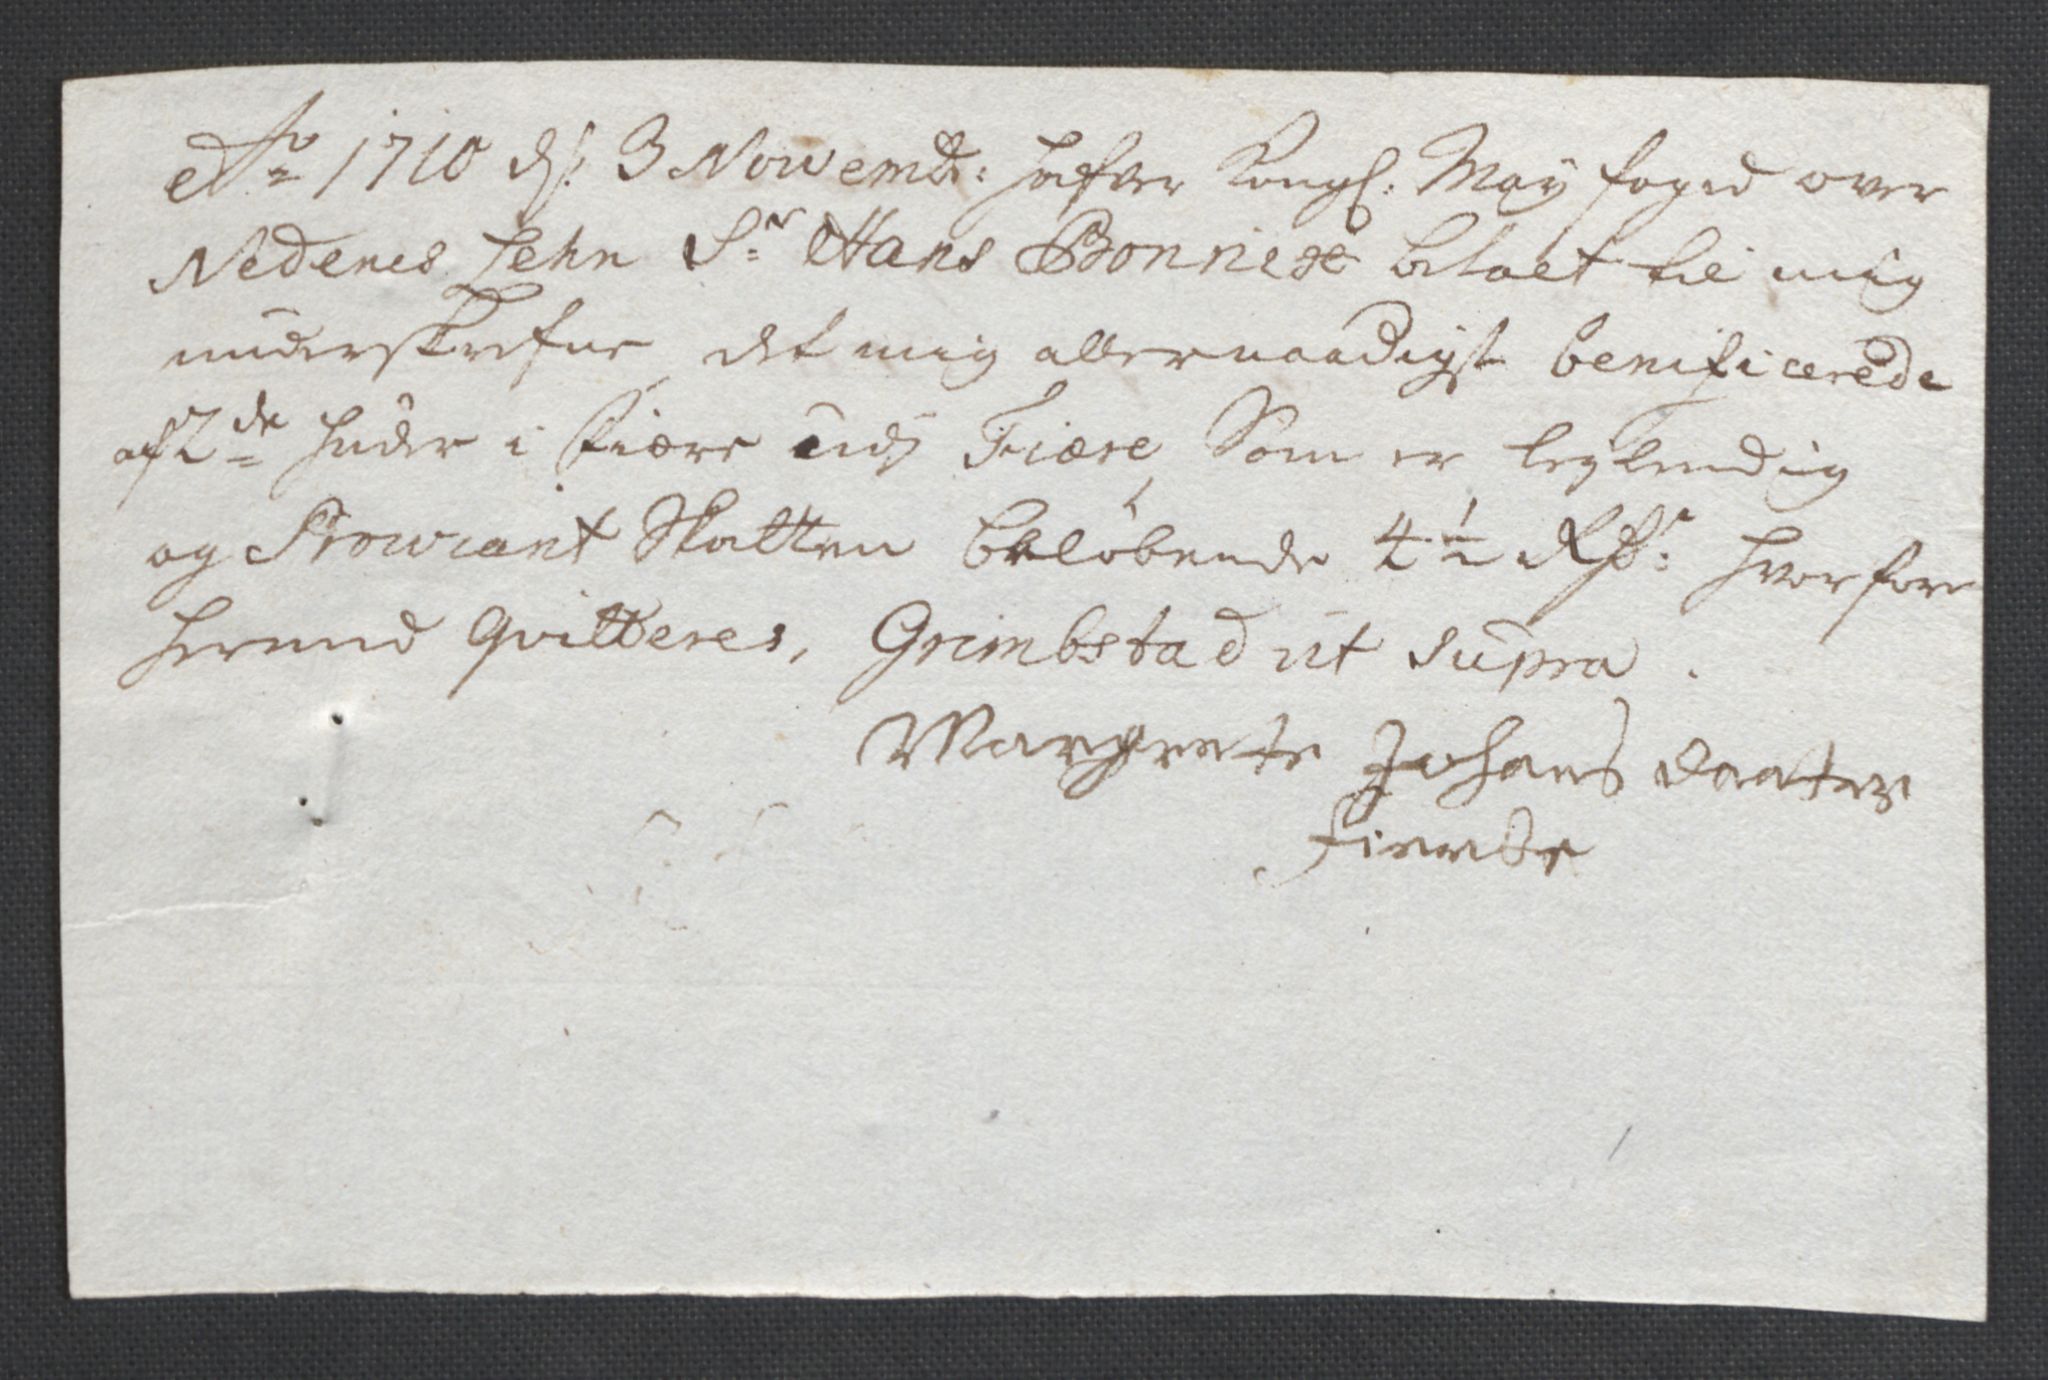 Ao 1710 d. 3 Nowembr: hafver Kongl: May foged over
Nedenes Lehn Sr Hans Bonniese betalt til mig
underskrefne det mig allernaadigst benificerede
af 2de huder i Fiære udj Fiære, Som er
og Prowiant Skatten belöbende 4½ Rdr: hvorfore
hermed qvitteres, Grimbstad ut supra.
Margrete Johans daater